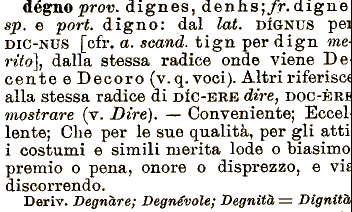 dégno prov. dignes, denhs; fr. digne
sp. e port. digno: dal lat. DÍGNUS per
DIC-NUS [cfr. a. scand. tign per dign me-
rito], dalla stessa radice onde viene De-
cente e Decoro (v. q. voci). Altri riferisce
alla stessa radice di DÍC-ERE dire, DOC-ÈRE
mostrare (v. Dire). — Conveniente; Eccel-
lente; Che per le sue qualità, per gli atti
i costumi e simili merita lode o biasimo
premio o pena, onore o disprezzo, e via
discorrendo.
Deriv. Degnàre; Degnévole; Degnità = Dignità